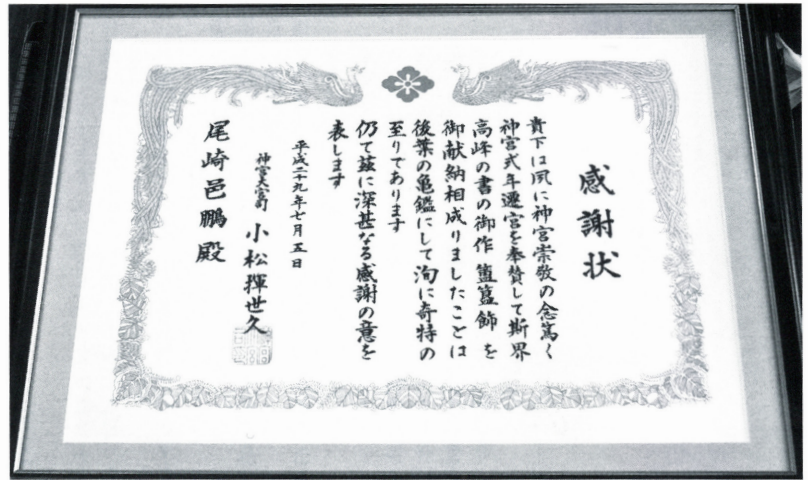 感謝状
貴下は夙に神宮崇敬の念篤く
神宮式年遷宮を奉賛して斯界
高峰の書の御作 簠簋飾 を
御献納相成りましたことは
後葉の亀鑑にして洵に奇特の
至りであります
仍て茲に深甚なる感謝の意を
表します
平成二十九年七月五日
神宮大宮司 小松揮世久
尾崎邑鵬殿